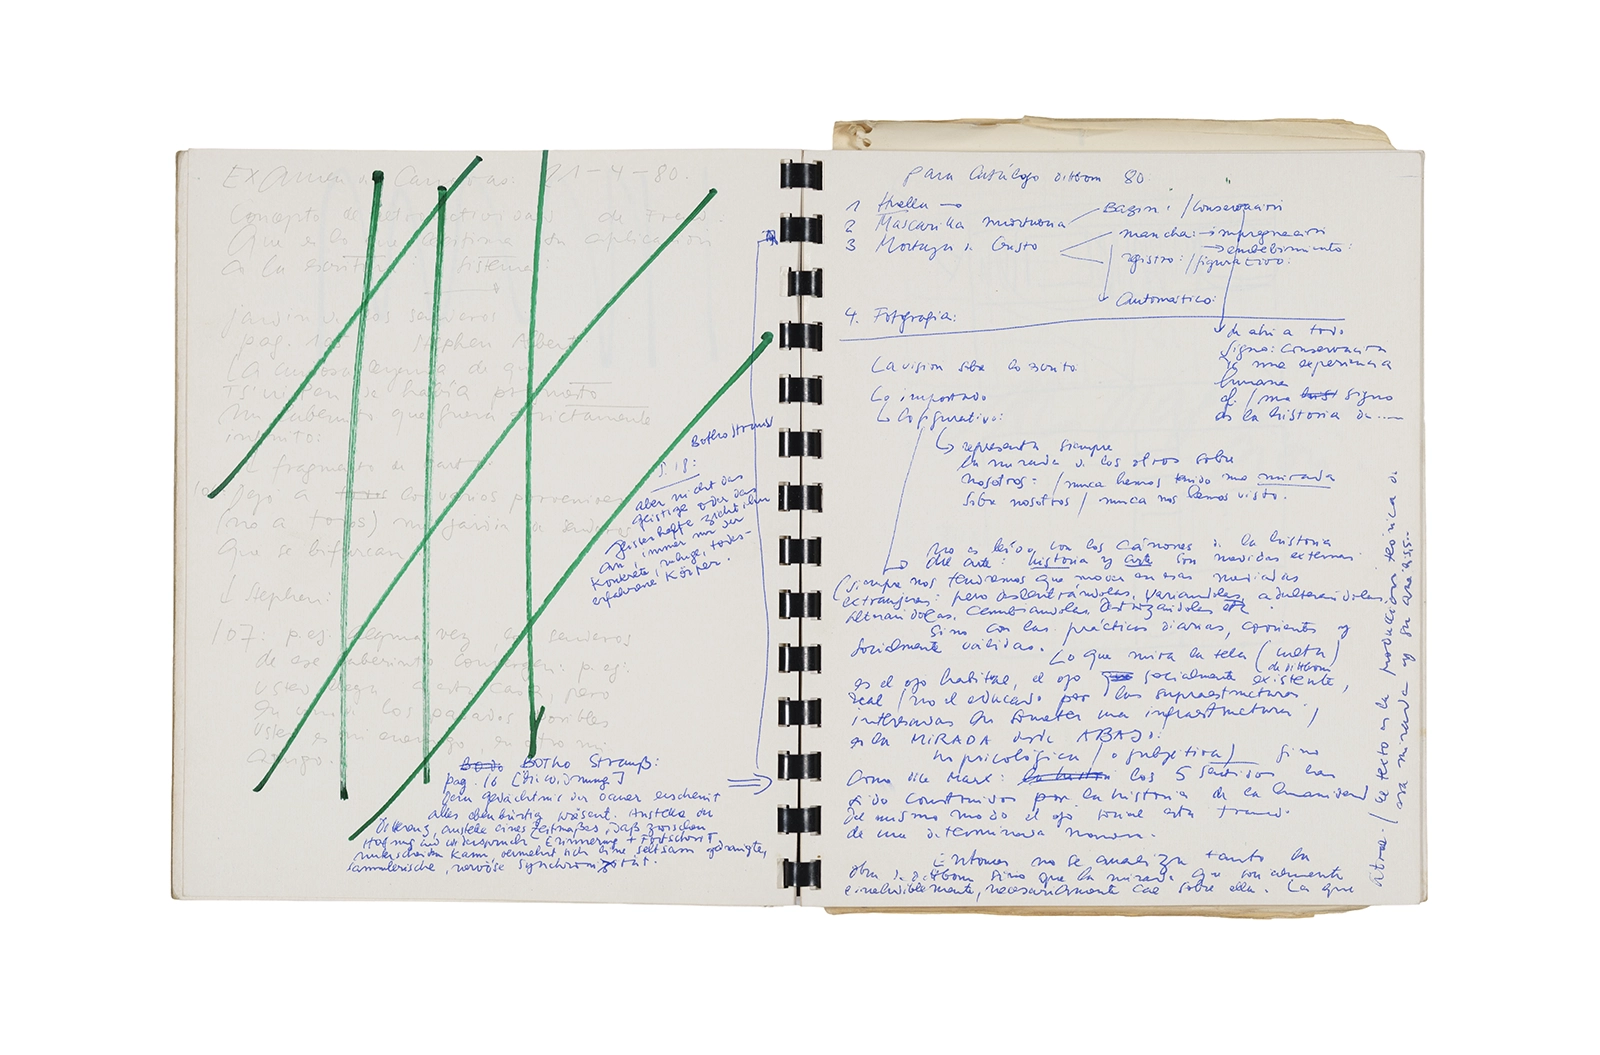 Examen de Carreras: 21-4-80.
Concepto de retroactividad de Freud.
Que es lo que legitima su aplicación
a la escritura: Sistema:
jardin de los senderos
pag. 10 Stephen Albert
La curiosa leyenda de que
Ts'ui Pên se había propuesto
un laberinto que fuera estrictamente
infinito:
fragmento de carta:
Dejo a todos los varios porvenires
(no a todos) mi jardin de senderos
que se bifurcan
↓ Stephen:
107: p.ej. alguna vez, los senderos
de ese laberinto convergen: p.ej:
usted llega a esta casa, pero
en uno de los pasados posibles
usted es mi enemigo, en otro mi
amigo.
Botho Strauss
S. 18:
aber nicht das
geistige oder das
geisterhafte zieht ihn
an, immer nur der
konkrete, ruhige, todes-
erfahrene Körper.
Botho Strauß:
pag. 16 [Die Widmung]
dem Gedächtnis der Dauer erscheint
alles ebenbürtig präsent. Anstelle der
Differenz, anstelle eines Zeitmaßes, daß zwischen
Hoffnung und Widerspruch Erinnerung + Fortschritt
unterscheiden kann, vermehrt sich eine seltsam gedrängte,
sammlerische, nervöse Synchronizität.
para Catálogo dittborn 80:
1 Huella →
2 Mascarilla mortuoria
3 Mortaja de Cristo
Bazin: / conservación
mancha: → impregnación
→ embebimiento:
registro: / figurativo:
Automático:
4. Fotografía:
de ahí a todo
signo: conservación
de una experiencia
humana
de / una signo
de la historia de ----
La visión sobre lo escrito
Lo importado
↳ Lo figurativo:
↳ representa siempre
la mirada de los otros sobre
nosotros: / nunca hemos tenido una mirada
sobre nosotros / nunca nos hemos visto.
no es leído con los cánones de la historia
del arte: historia y arte son medidas externas
(siempre nos tendremos que mover en esas medidas
extranjeras: pero asentándolas, variándolas, adulterándolas,
alterándolas, cambiándolas, etc.
Sino con las prácticas diarias, corrientes y
socialmente válidas. Lo que mira la tela (meta)
de dittborn
es el ojo habitual, el ojo socialmente existente,
real / no el educado por las supraestructuras
interesadas en someter una infraestructura /
es la MIRADA desde ABAJO:
no psicológica / o subjetiva) sino
como dice Marx: los 5 sentidos han
sido construidos por la historia de la humanidad
del mismo modo el ojo viene
de una determinada manera.
Entonces no se analiza tanto la
obra de dittborn sino que la mirada que socialmente
e ineludiblemente, necesariamente cae sobre ella. La que
otros. / (el texto es la producción teórica de
esa mirada y su análisis..